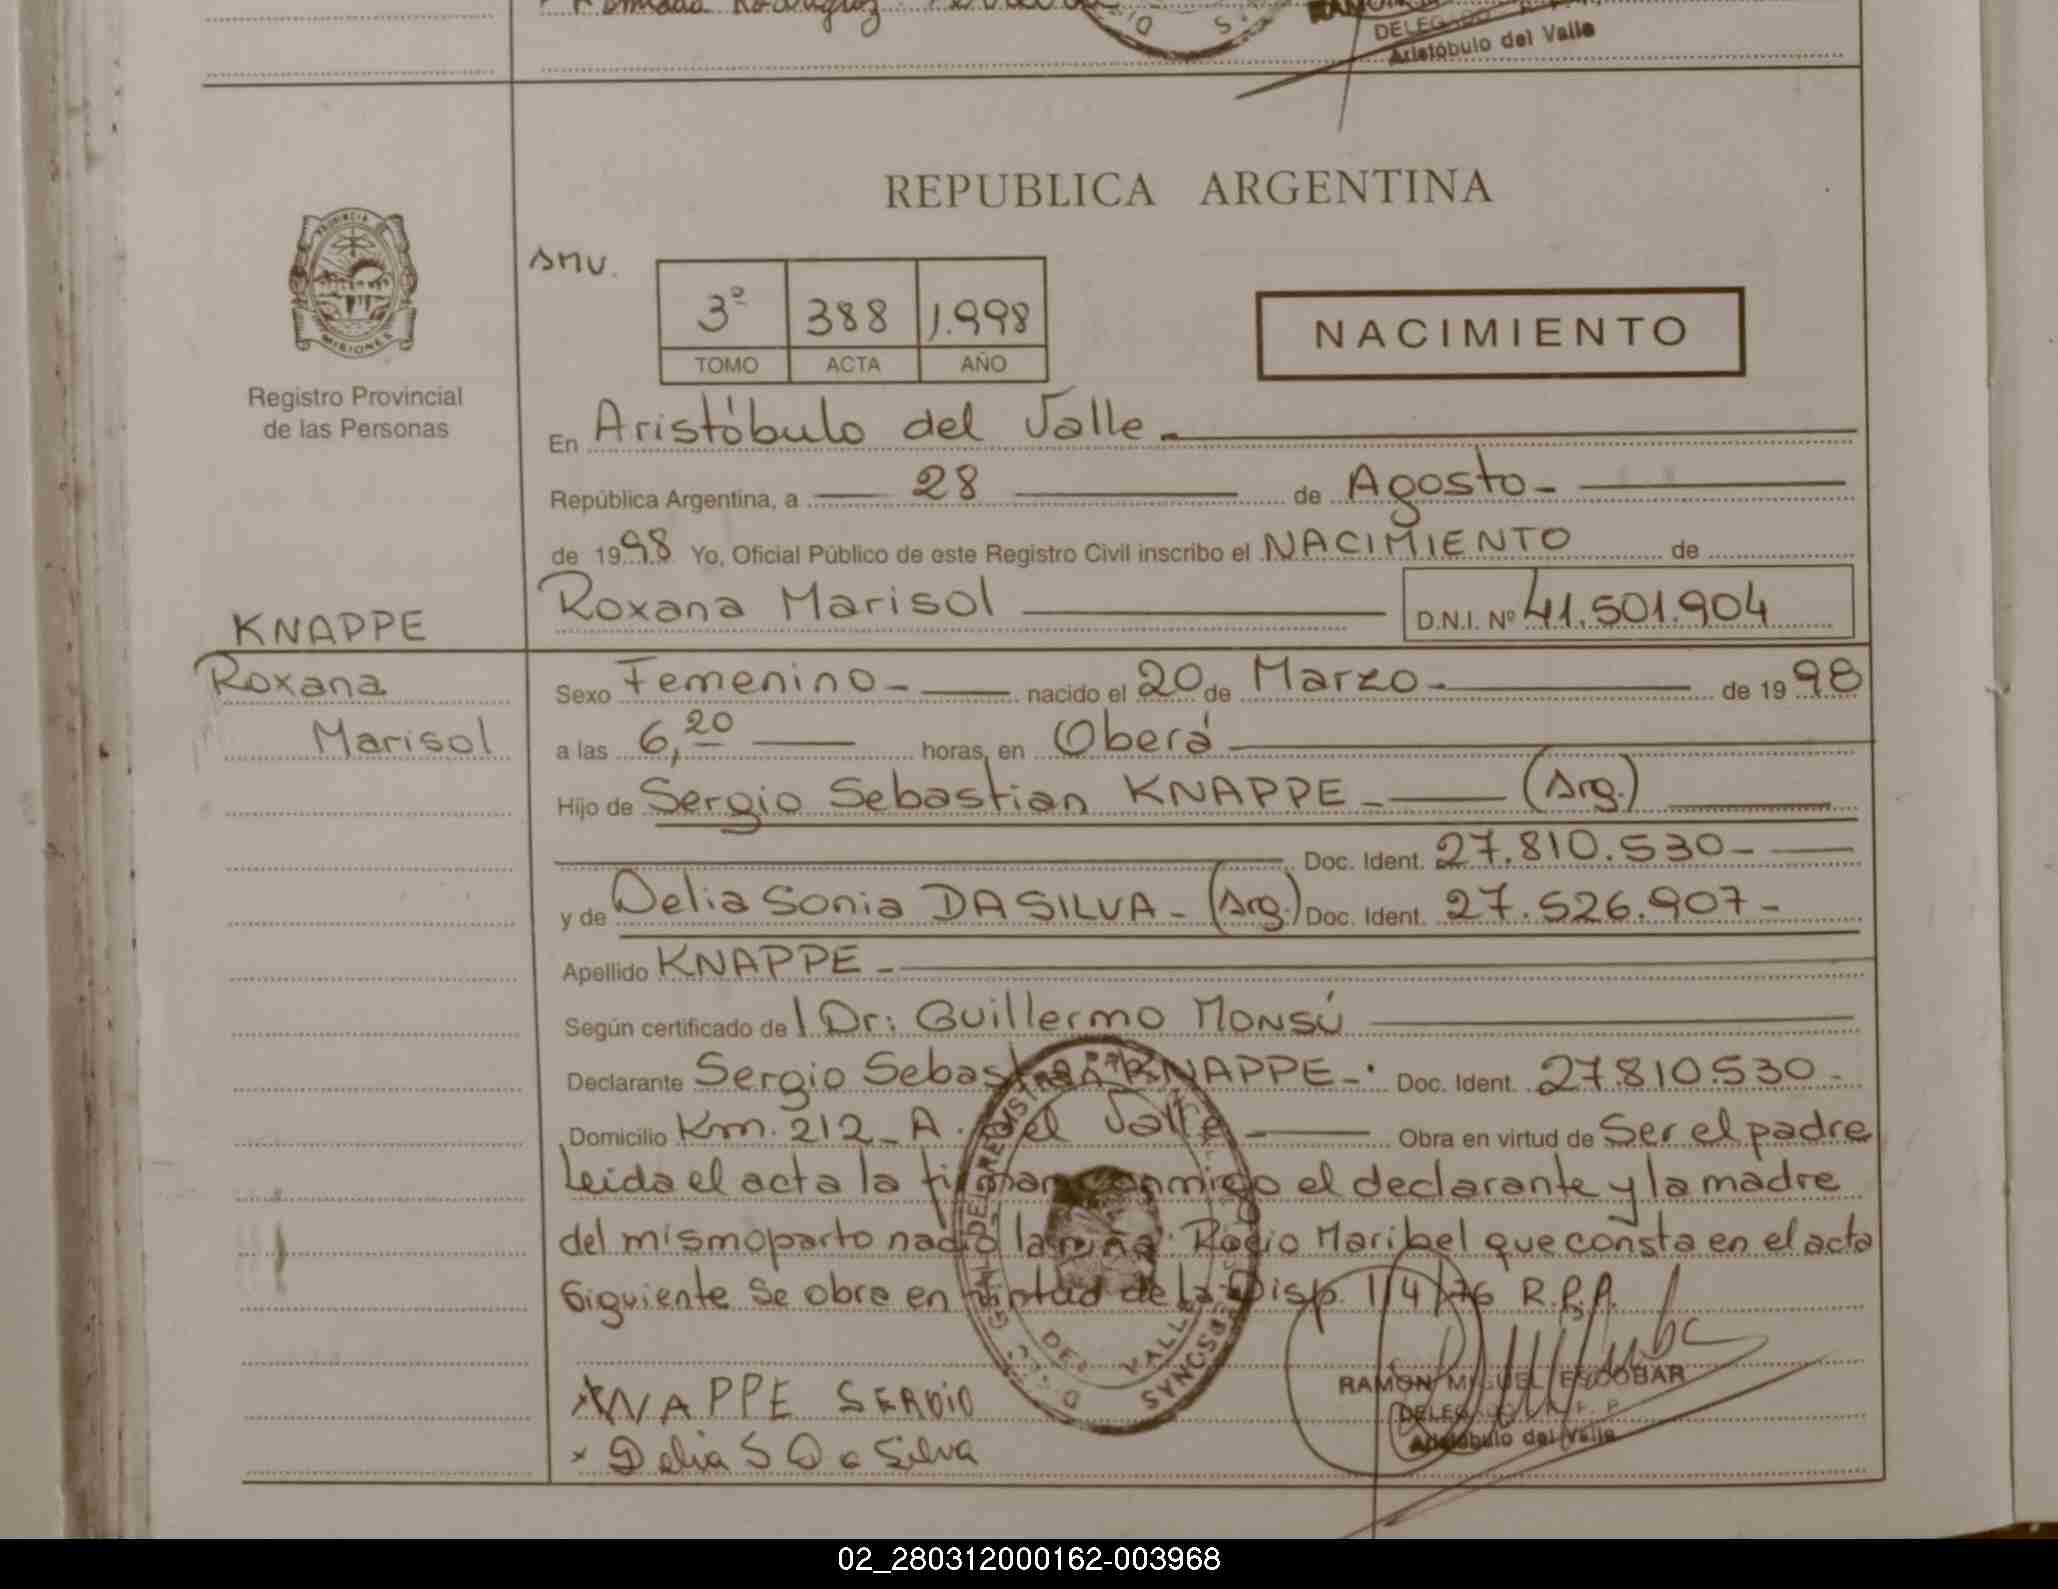 DELEGADO
Aristóbulo del Valle
REPUBLICA ARGENTINA
PROVINCIA
MISIONES
Registro Provincial
de las Personas
smv.
3º 388 1.998
TOMO ACTA AÑO
NACIMIENTO
En Aristóbulo del Valle.
República Argentina, a 28 de Agosto-
de 1998 Yo, Oficial Público de este Registro Civil inscribo el NACIMIENTO de
KNAPPE
Roxana Marisol D.N.I. Nº 41.501.904
Roxana
Marisol
Sexo Femenino- nacido el 20 de Marzo- de 1998
a las 6,20 horas, en Oberá
Hijo de Sergio Sebastian KNAPPE- (Arg.)
Doc. Ident. 27.810.530-
y de Delia Sonia DA SILVA- (Arg.) Doc. Ident. 27.526.907-
Apellido KNAPPE-
Según certificado de Dr: Guillermo MONSÚ
Declarante Sergio Sebastian KNAPPE- Doc. Ident. 27.810.530-
Domicilio Km. 212_A. del Valle- Obra en virtud de Ser el padre
Leida el acta la firman conmigo el declarante y la madre
del mismo parto nació la niña: Rocio Maribel que consta en el acta
Siguiente Se obra en virtud de la Disp. 1/4/76 R.P.P.
KNAPPE SERGIO
RAMON MIGUEL ESCOBAR
DELEGADO R. P. P.
Aristóbulo del Valle
x Delia S Da Silva
02_280312000162-003968